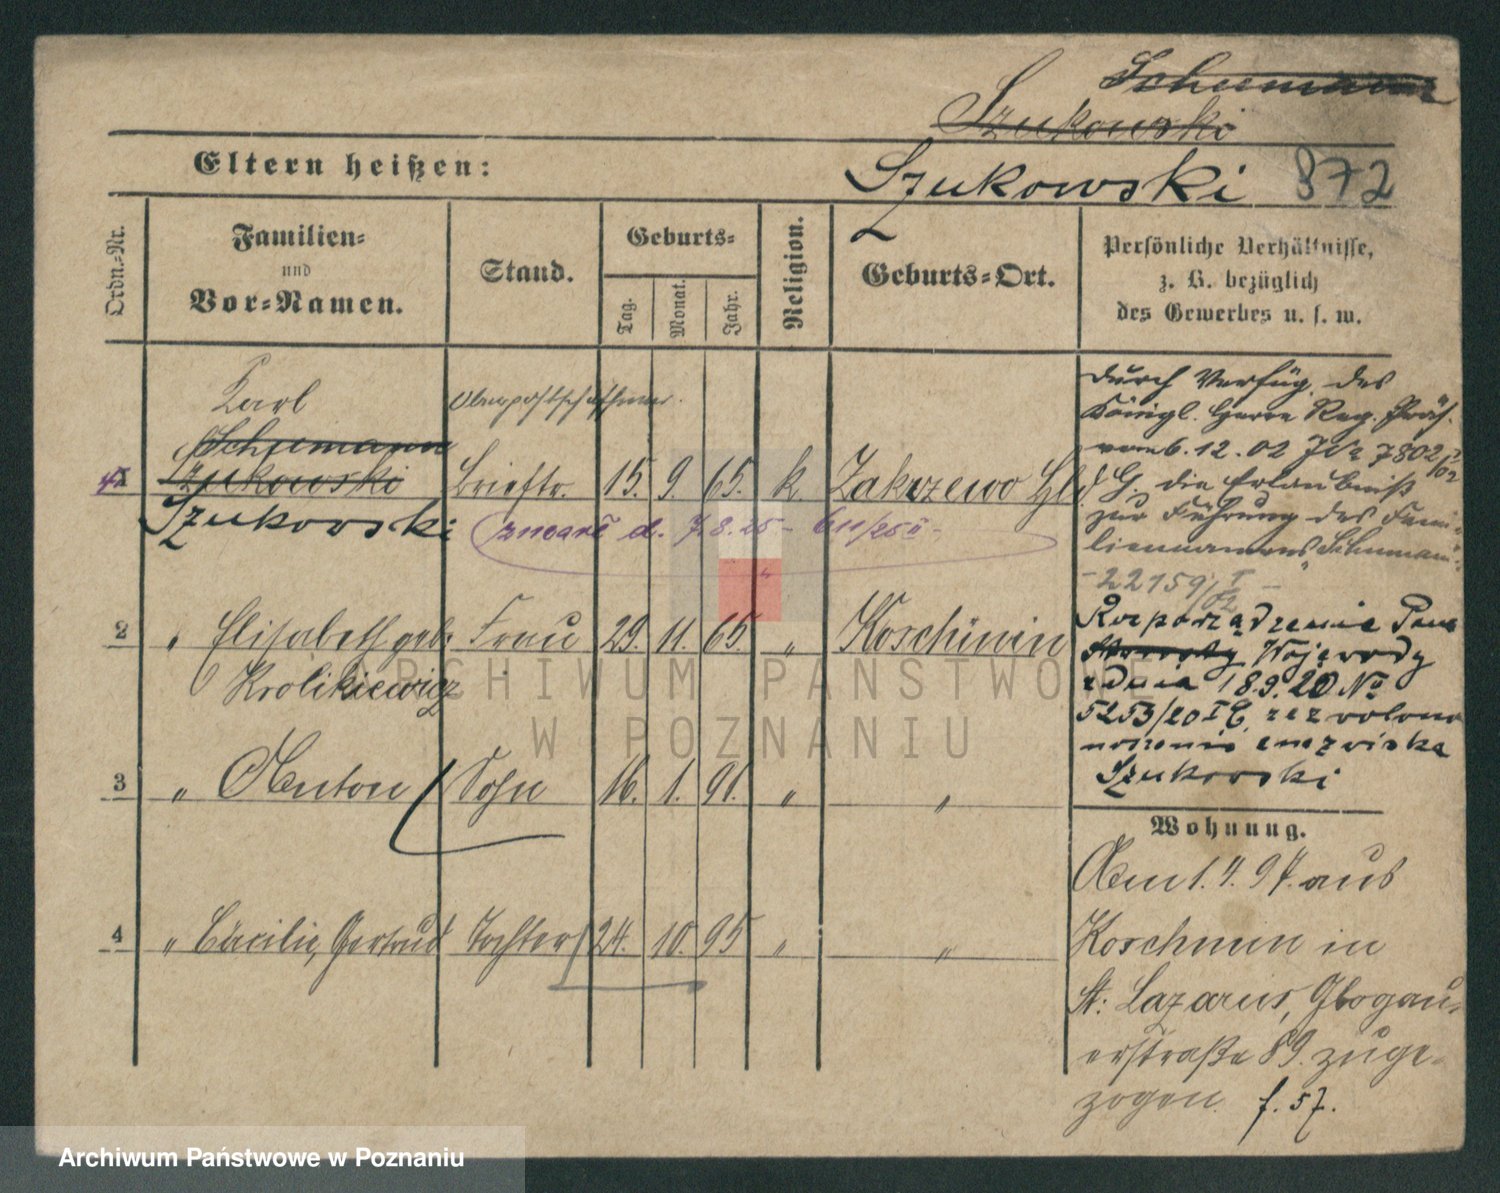 Schumann
Szukowski
Eltern heißen:
Szukowski 872
Ordn.-Nr.
Familien-
und
Vor-Namen.
Stand.
Geburts-
Tag.
Monat.
Jahr.
Religion.
Geburts-Ort.
Persönliche Verhältnisse,
z. B. bezüglich
des Gewerbes u. s. w.
Karl
Oberpostschaffner.
Schumann
1 Szukowski Brieftr. 15. 9. 65. k. Zakrzewo
Szukowski
zmarł d. 7.8.25 - 611/25 II -
2 " Elisabeth geb. Frau 29. 11. 65. " Koschmin
Krolikiewicz
3 " Anton Sohn 16. 1. 91. " "
4 " Cäcilie, Gertrud Tochter 24. 10. 95 " "
durch Verfüg. des
Königl. Herrn Reg. Präs.
vom 6. 12. 02 7802
die Erlaubniß
zur Führung des Fami-
liennamens "Schumann"
- 22159/02 I -
Rozporządzenie Pana
Wojewody
z dnia 18.9.20 No
5253/20 I zezwolono
noszenie nazwiska
Szukowski
Wohnung.
Am 1. 4. 97. aus
Koschmin in
St. Lazarus, Glogau-
erstraße 89. zuge-
zogen. f. 57.
ARCHIWUM PAŃSTWOWE
W POZNANIU
Archiwum Państwowe w Poznaniu